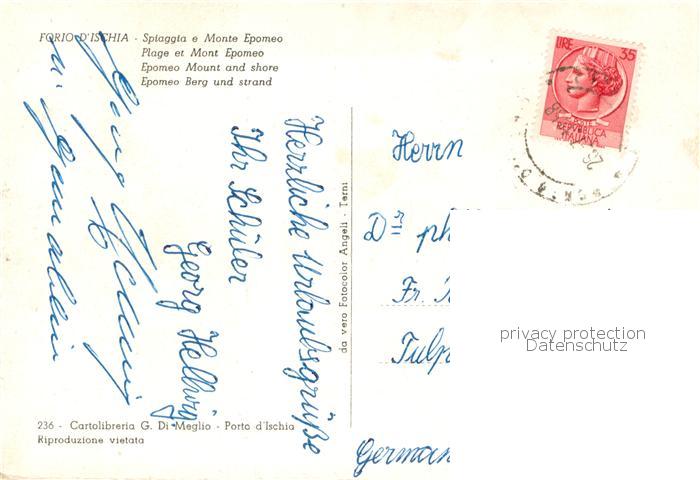 FORIO D'ISCHIA - Spiaggia e Monte Epomeo
Plage et Mont Epomeo
Epomeo Mount and shore
Epomeo Berg und strand
LIRE 35
POSTE
REPVBBLICA
ITALIANA
Herrliche Urlaubsgrüße
Ihr Schüler
Georg Hellwig
da vero Fotocolor Angeli - Terni
Herrn
Dr ph
Fr.
Tulp
German
privacy protection
Datenschutz
236 - Cartolibreria G. Di Meglio - Porto d'Ischia
Riproduzione vietata